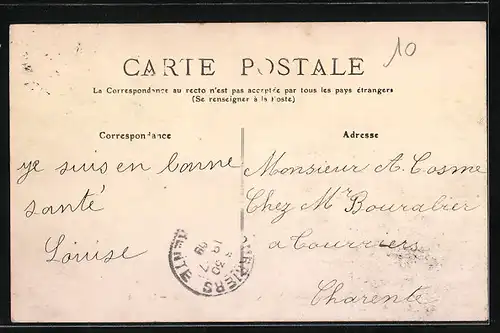 10
CARTE POSTALE
La Correspondance au recto n'est pas acceptée par tous les pays étrangers
(Se renseigner à la Poste)
Correspondance
Adresse
ye suis en bonne
santé
Louise
Monsieur A. Cosme
Chez Mr Bouralier
a Courriers
Charente
19
30 7
09